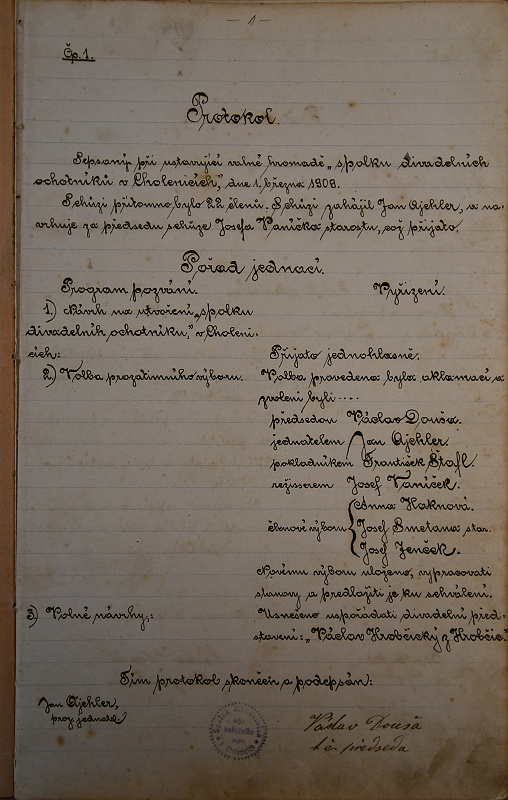 — 1 —
Čp. 1.
Protokol.
Sepsaný při ustavující valné hromadě „spolku divadelních
ochotníků v Cholenicích," dne 1. března 1908.
Schůzi přítomno bylo 22 členů. Schůzi zahájil Jan Ajchler, a na-
vrhuje za předsedu schůze Josefa Vaníčka starostu, což přijato.
Pořad jednací.
Program pozvání. Vyřízení.
1.) Návrh na utvoření „spolku
divadelních ochotníků," v Choleni-
cích: Přijato jednohlasně.
2.) Volba prozatimního výboru. Volba provedena byla aklamací a
zvoleni byli ....
předsedou Václav Douša.
jednatelem Jan Ajchler.
pokladníkem František Štafl.
režisserem Josef Vaníček.
členové výboru Anna Haknová.
Josef Smetana star.
Josef Jenček.
Novému výboru uloženo, vypracovati
stanovy a předložiti je ku schválení.
3) Volné návrhy: Usneseno uspořádati divadelní před-
stavení: „Václav Hrobčický z Hrobčic."
Tím protokol skončen a podepsán:
Jan Ajchler,
proz. jednatel
Václav Douša
t. č. předseda